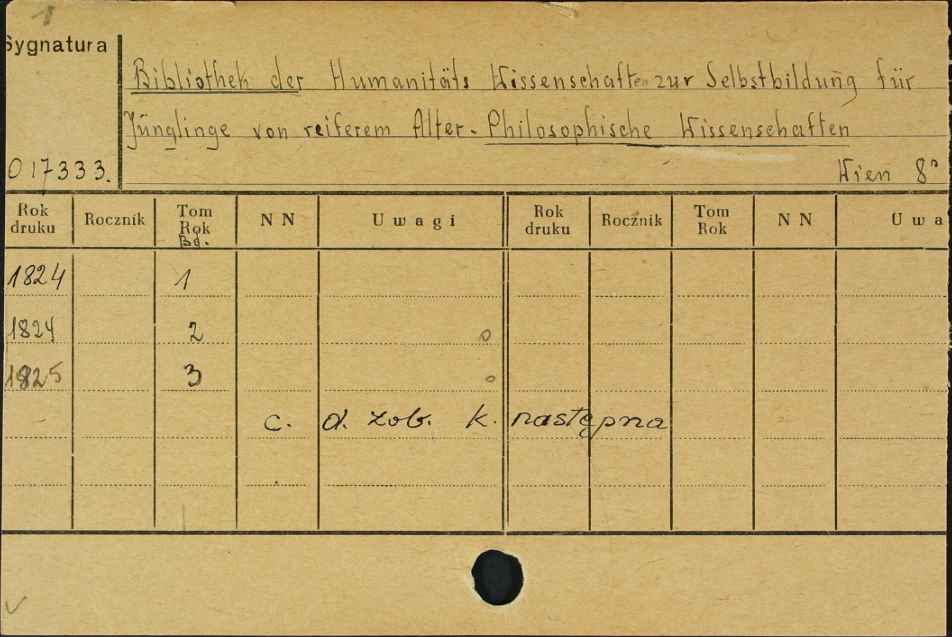 1
Sygnatura
Bibliothek der Humanitäts Wissenschaften zur Selbstbildung für
Jünglinge von reiferem Alter. Philosophische Wissenschaften
017333.
Wien 8°
Rok druku Rocznik Tom Rok Bd. NN Uwagi Rok druku Rocznik Tom Rok NN Uwa
1824 1
1824 2
1825 3
c. d. zob. k. następna